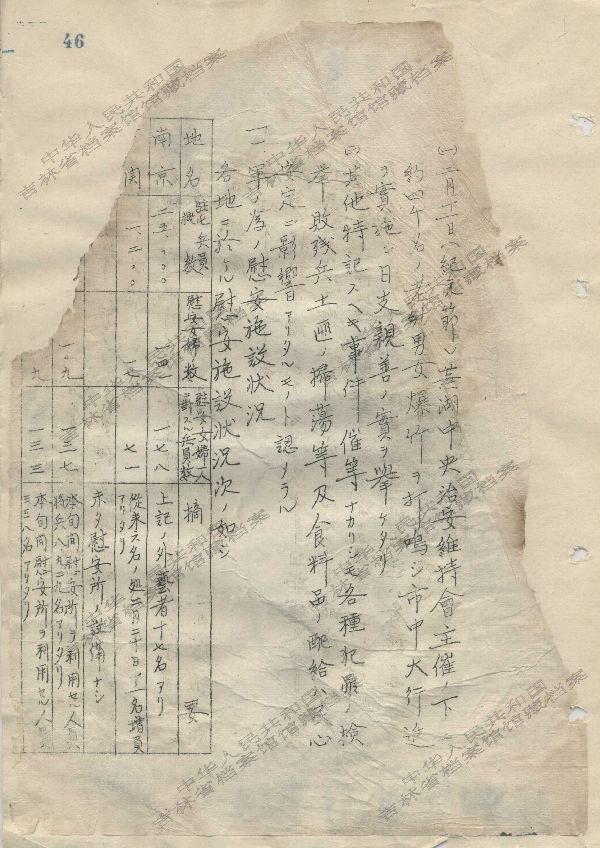 46
(一)二月十一日(紀元節)蕪湖中央治安維持會主催ノ下ニ
約四千名ノ男女爆竹ヲ打鳴シ市中大行進
ヲ實施シ日支親善ノ實ヲ擧ケタリ
其他特記スヘキ事件 催等ナカリシモ各種犯罪ノ檢
擧敗殘兵土匪ノ掃蕩等及食料品ノ配給ハ 心
安定ニ影響 アリタルモノト認メラル
一、軍ノ為ノ慰安施設狀況
各地ニ於ケル慰安施設狀況次ノ如シ
地名 駐屯兵員概數 慰安婦數 慰安婦一人ニ對スル兵員數 摘要
南京 二五、〇〇〇 一四一 一七八 上記ノ外藝者十七名アリ
関 一、二〇〇 一七 七一 從来 名ノ処二月二十日 一名増員アリタリ
未タ慰安所ノ設備ナシ
一〇九 一三七 本旬間慰安所ヲ利用セル人員將兵八、九二九名アリタリ
九 一三三 本旬間慰安所ヲ利用セル人員 三三八名アリタリ
中华人民共和国
吉林省档案馆馆藏档案